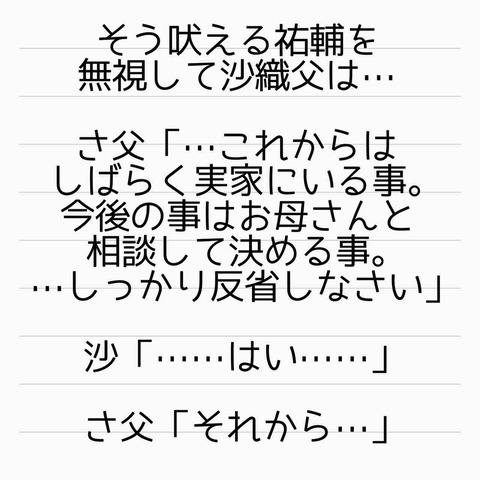 そう吠える祐輔を
無視して沙織父は…
さ父「…これからは
しばらく実家にいる事。
今後の事はお母さんと
相談して決める事。
…しっかり反省しなさい」
沙「……はい……」
さ父「それから…」